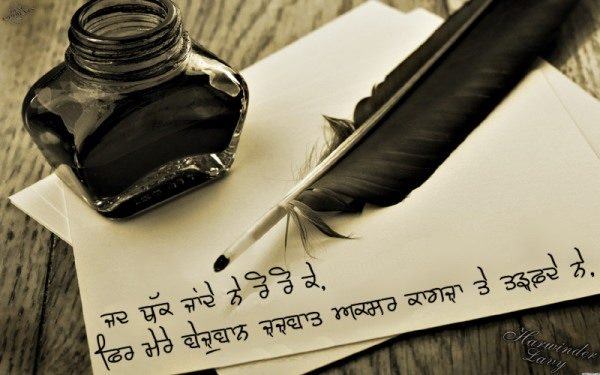 ਜਦ ਥੱਕ ਜਾਂਦੇ ਨੇ ਰੋ ਰੋ ਕੇ,
ਫਿਰ ਮੇਰੇ ਬੇਜ਼ੁਬਾਨ ਜਜ਼ਬਾਤ ਅਕਸਰ ਕਾਗਜ਼ਾ ਤੇ ਤੜਫਦੇ ਨੇ,
Harwinder
Lavy